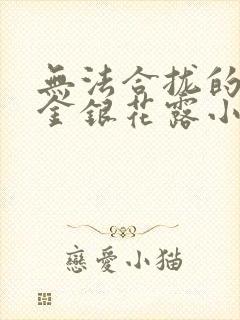 無法合拢的
金銀花露小
戀愛小猫